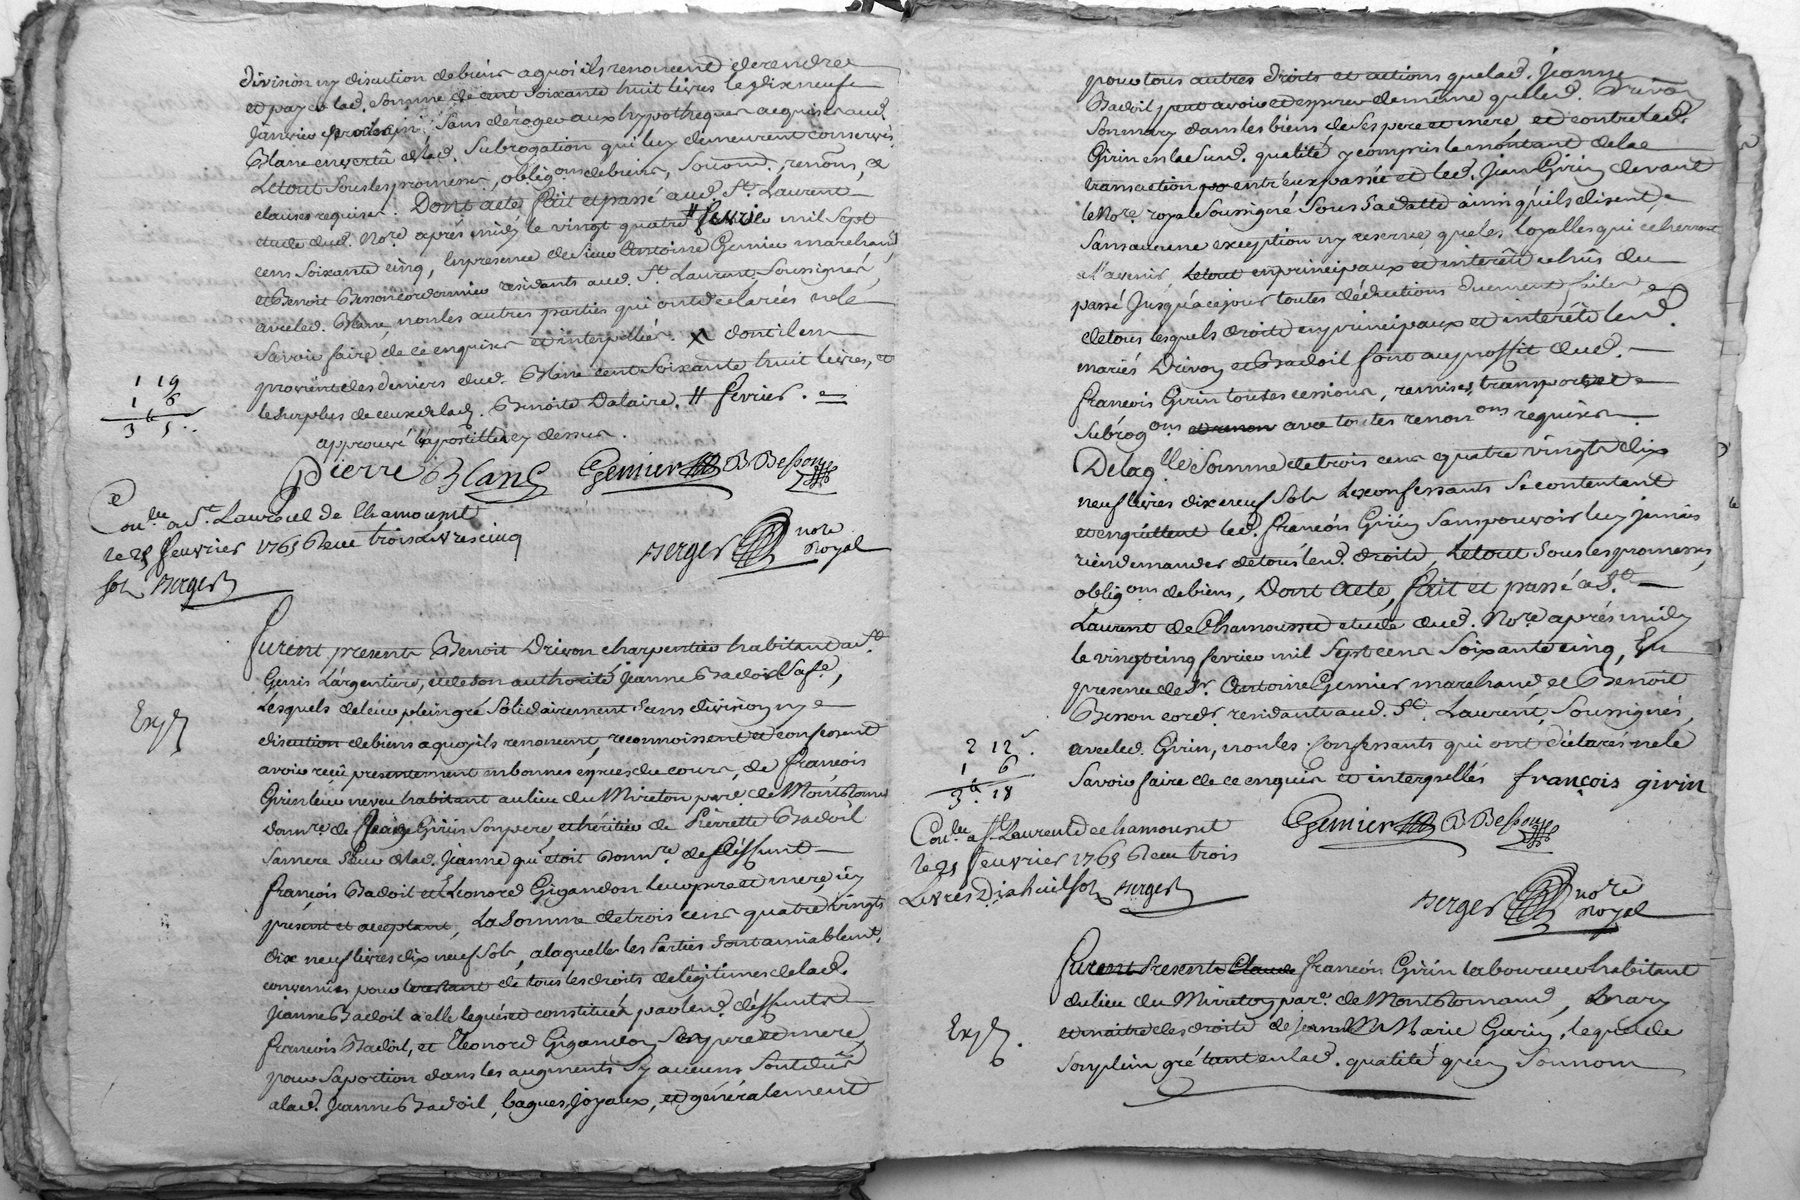 division ny discution de biens a quoi ils renoncent de rendre
et payer lad. somme de cent soixante huit livres le dix neuf
Janvier prochain sans déroger aux hypotheques acquises aud.
Blanc en vertu de lad. subrogation qui luy demeurent conservés
Le tout sous les promesses, oblig.ons de biens, soumons., renons., et
clauses requises. Dont acte fait et passé aud. St. Laurent
etude dud. Nore. après midy le vingt quatre # fevrier mil sept
cens soixante cinq, En presence de sieur Antoine Gemier marchand
et Benoit Besson cordonnier residants aud. St. Laurent, Soussignés
avec led. Blanc, non les autres parties qui ont declarées ne le
savoir faire de ce enquises et interpellés. X dont il en
provient des deniers dud. Blanc cent soixante huit livres, et
le surplus de ceux de lad. Benoite Dalaire. # fevrier.
approuvé l'apostille cy dessus.
1 19
1 6
3 ll 5 ..
Pierre Blanc Gemier B Besson
Con.lé a St. Laurent de Chamousset
le 25 feuvrier 1765 Receu trois livres cinq
sols Berger
Berger nore Royal
Furent presents Benoit Drivon charpentier habitant a St.
Genis L'argentiere, et de son authorité Jeanne Badoil sa fe.,
Lesquels de leur plein gré solidairement sans division ny
discution de biens a quoy ils renoncent, reconnoissent et confessent
avoir reçu presentement en bonnes especes du cours, de François
Girin leur neveu habitant au lieu du Mireton par.e de Montromand
donn.re de Girin son pere, et héritier de Pierrette Badoil
sa mere Sœur de lad. Jeanne qui etoit donn.re de deffunt
François Badoil et Eleonord Gigandon leur pere et mere icy
présent et acceptant, La somme de trois cens quatre vingts
dix neuf livres dix neuf sols, a laquelle les Parties sont amiablemt.
convenues pour le restant de tous les droits de légitimes de lad.
Jeanne Badoil a elle legués et constitués par led. déffunts
François Badoil, et Eleonord Gigandon ses pere et mere,
pour sa portion dans les augments sy aucuns sont dus
a lad. Jeanne Badoil, bagues, Joyaux, et généralement
Exp.
pour tous autres droits et actions que lad. Jeanne
Badoil peut avoir et esperer de même que led. Drivon
son mary dans les biens de ses pere et mere et contre led.
Girin en lad. qualité y compris le montant de la
transaction entr'eux passée et led. Jean Girin devant
le Nore. royal soussigné sous sa datte ainsi qu'ils disent,
sans aucune exception ny reserve que les loyalles qui echerront
a l'avenir, le tout en principaux et intérêts echus du
passé Jusqu'a ce jour toutes déductions duement faites
de tous lesquels droits en principaux et intérêts led.
mariés Drivon et Badoil font au proffit dud.
François Girin toutes cessions, remises, transports et
subrog.ons avec toutes renon.ons requises
De laq.lle somme de trois cens quatre vingts dix
neuf livres dix neuf sols Les confessants se contentent
et en quittent led. François Girin sans pouvoir luy jamais
rien demander de tous led. droits, Le tout sous les promesses,
oblig.ons de biens, Dont Acte, fait et passé a St.
Laurent de Chamousset etude dud. Nore. après midy
le vingt cinq fevrier mil sept cens soixante cinq, En
presence de Sr. Antoine Gemier marchand et Benoit
Besson cordr. residants aud. St. Laurent, Soussignés,
avec led. Girin, non les Confessants qui ont déclarés ne le
savoir faire de ce enquis et interpellés françois girin
2 12
1 6
3 ll 18
Gemier B Besson
Con.lé a St Laurent de chamousset
le 25 feuvrier 1765 Receu trois
Livres Dix huit sols Berger
Berger nore Royal
Furent Presents Claude François Girin laboureur habitant
du lieu du Mireton par.e de Montromand, Mary
et maitre des droits de Marie Garin, lequel de
son plein gré tant en lad. qualité qu'en son nom
Exp.